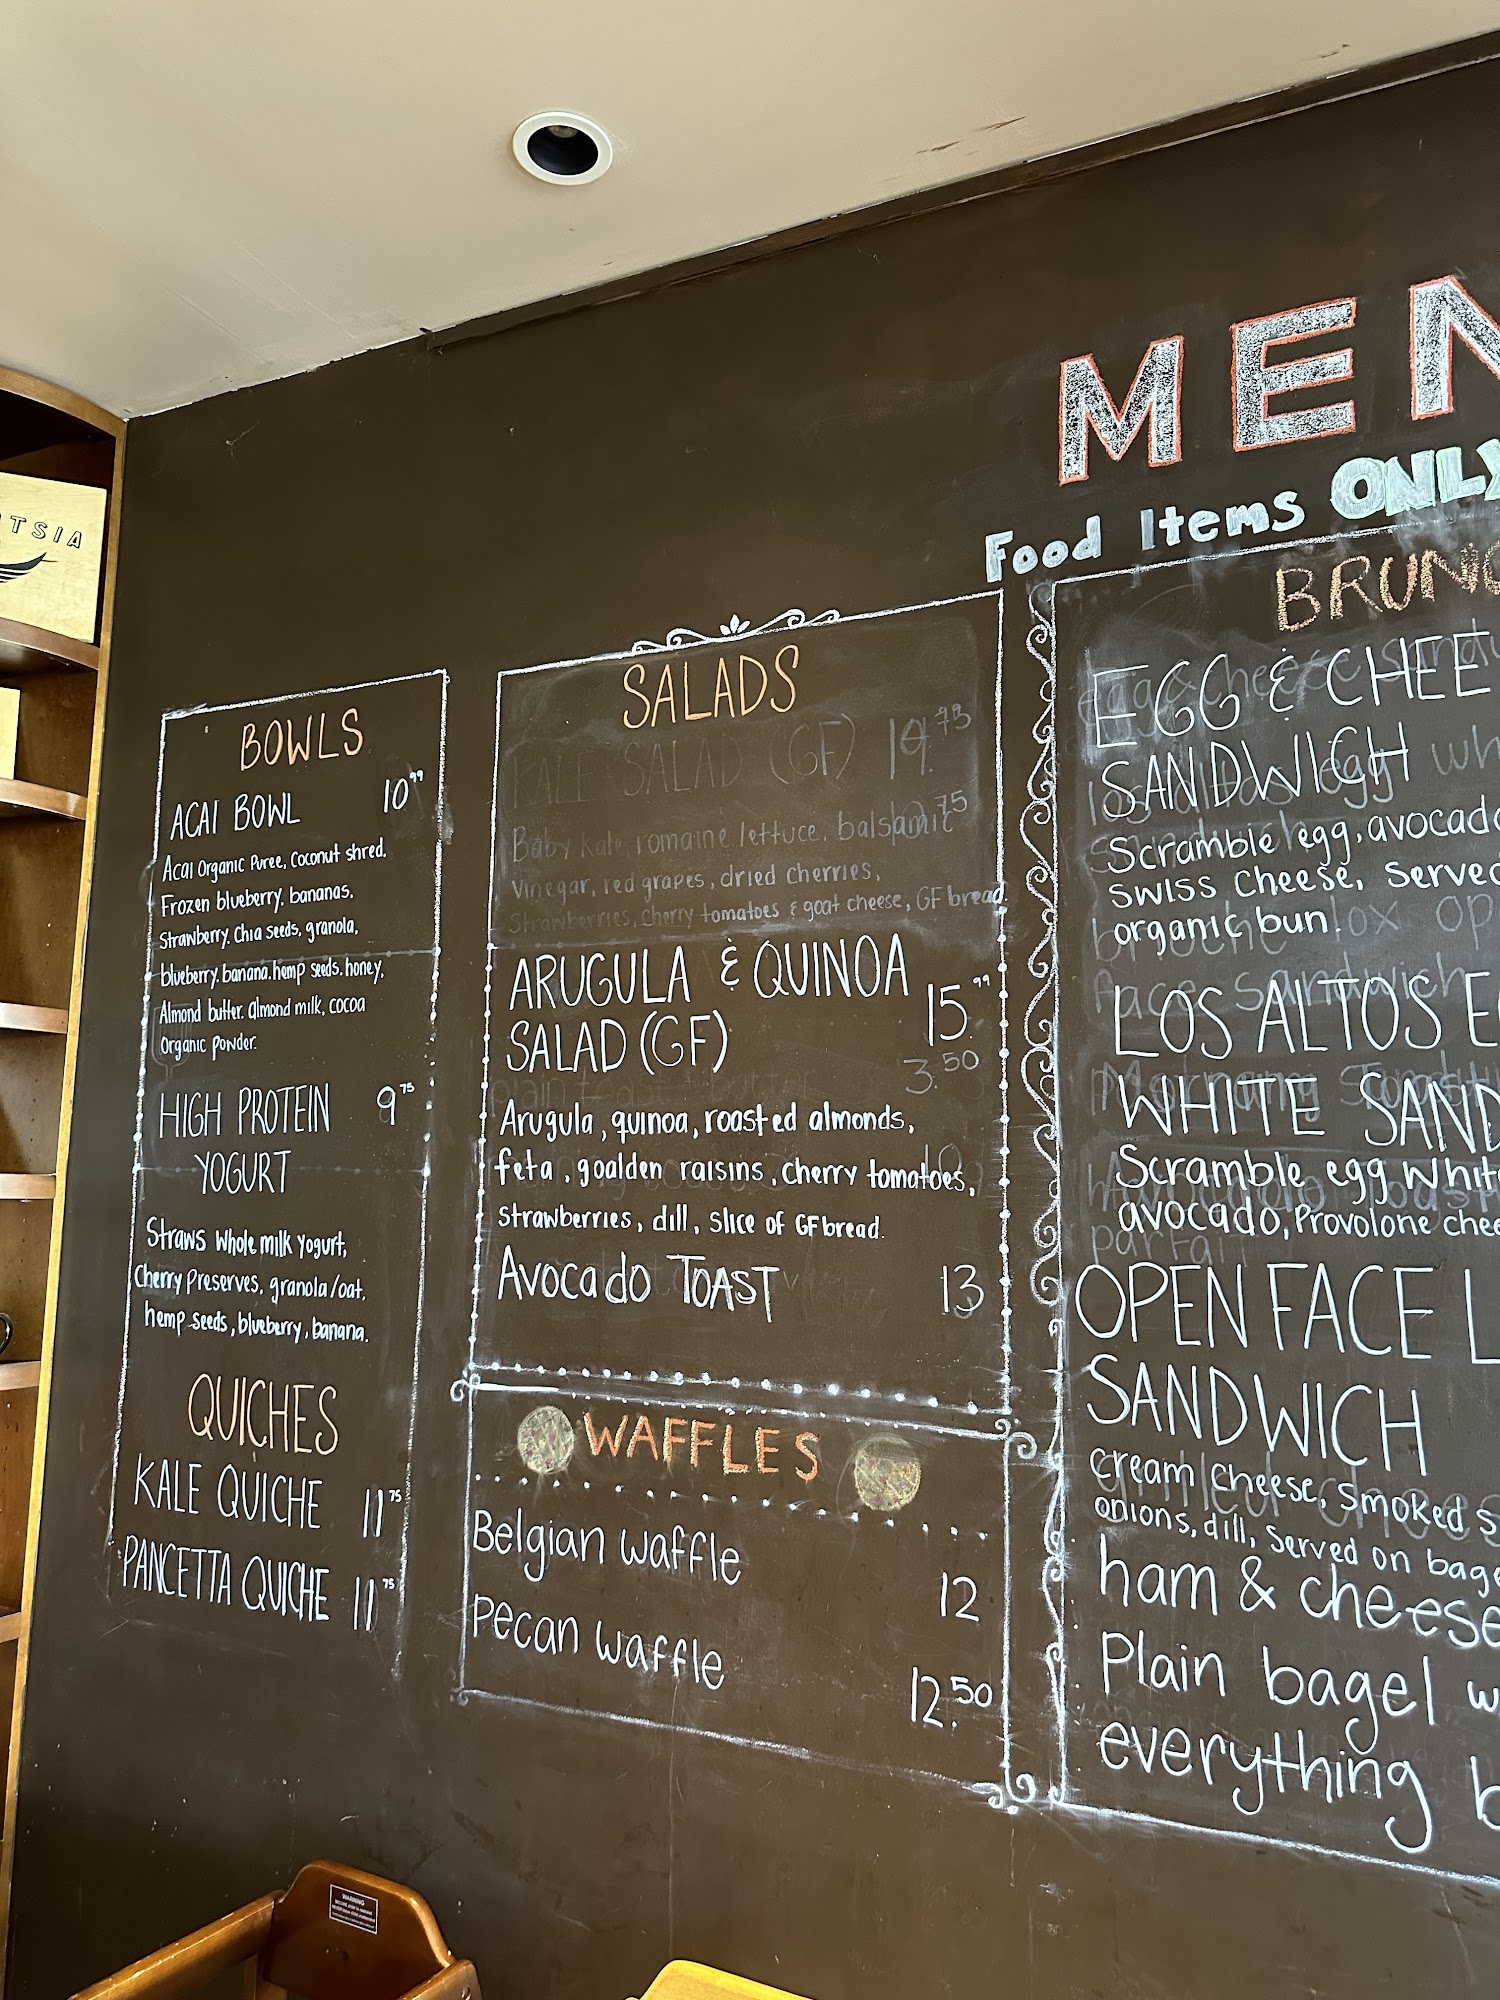 TSIA
MEN
Food Items ONLY
BOWLS
ACAI BOWL 10.99
Acai Organic Puree, Coconut shred,
Frozen blueberry, bananas,
Strawberry, Chia seeds, granola,
blueberry, banana, hemp seeds, honey,
Almond butter, almond milk, cocoa
Organic Powder.
HIGH PROTEIN 9.75
YOGURT
Straws Whole milk Yogurt,
Cherry Preserves, granola/oat,
hemp seeds, blueberry, banana.
QUICHES
KALE QUICHE 11.75
PANCETTA QUICHE 11.75
SALADS
KALE SALAD (GF) 14.75
Baby kale, romaine lettuce, balsamic
Vinegar, red grapes, dried cherries,
Strawberries, Cherry tomatoes & goat cheese, GF bread.
ARUGULA & QUINOA
SALAD (GF) 15.99
3.50
Arugula, quinoa, roasted almonds,
feta, goalden raisins, cherry tomatoes,
Strawberries, dill, slice of GF bread.
Avocado TOAST 13
WAFFLES
Belgian waffle 12
Pecan waffle 12.50
BRUNC
EGG & CHEE
SANDWICH
Scramble egg, avocado
Swiss Cheese, Served
organic bun.
LOS ALTOS E
WHITE SAND
Scramble egg whit
avocado, Provolone chee
OPEN FACE L
SANDWICH
Cream Cheese, Smoked S
onions, dill, Served on bage
ham & cheese
Plain bagel w
everything b
WARNING